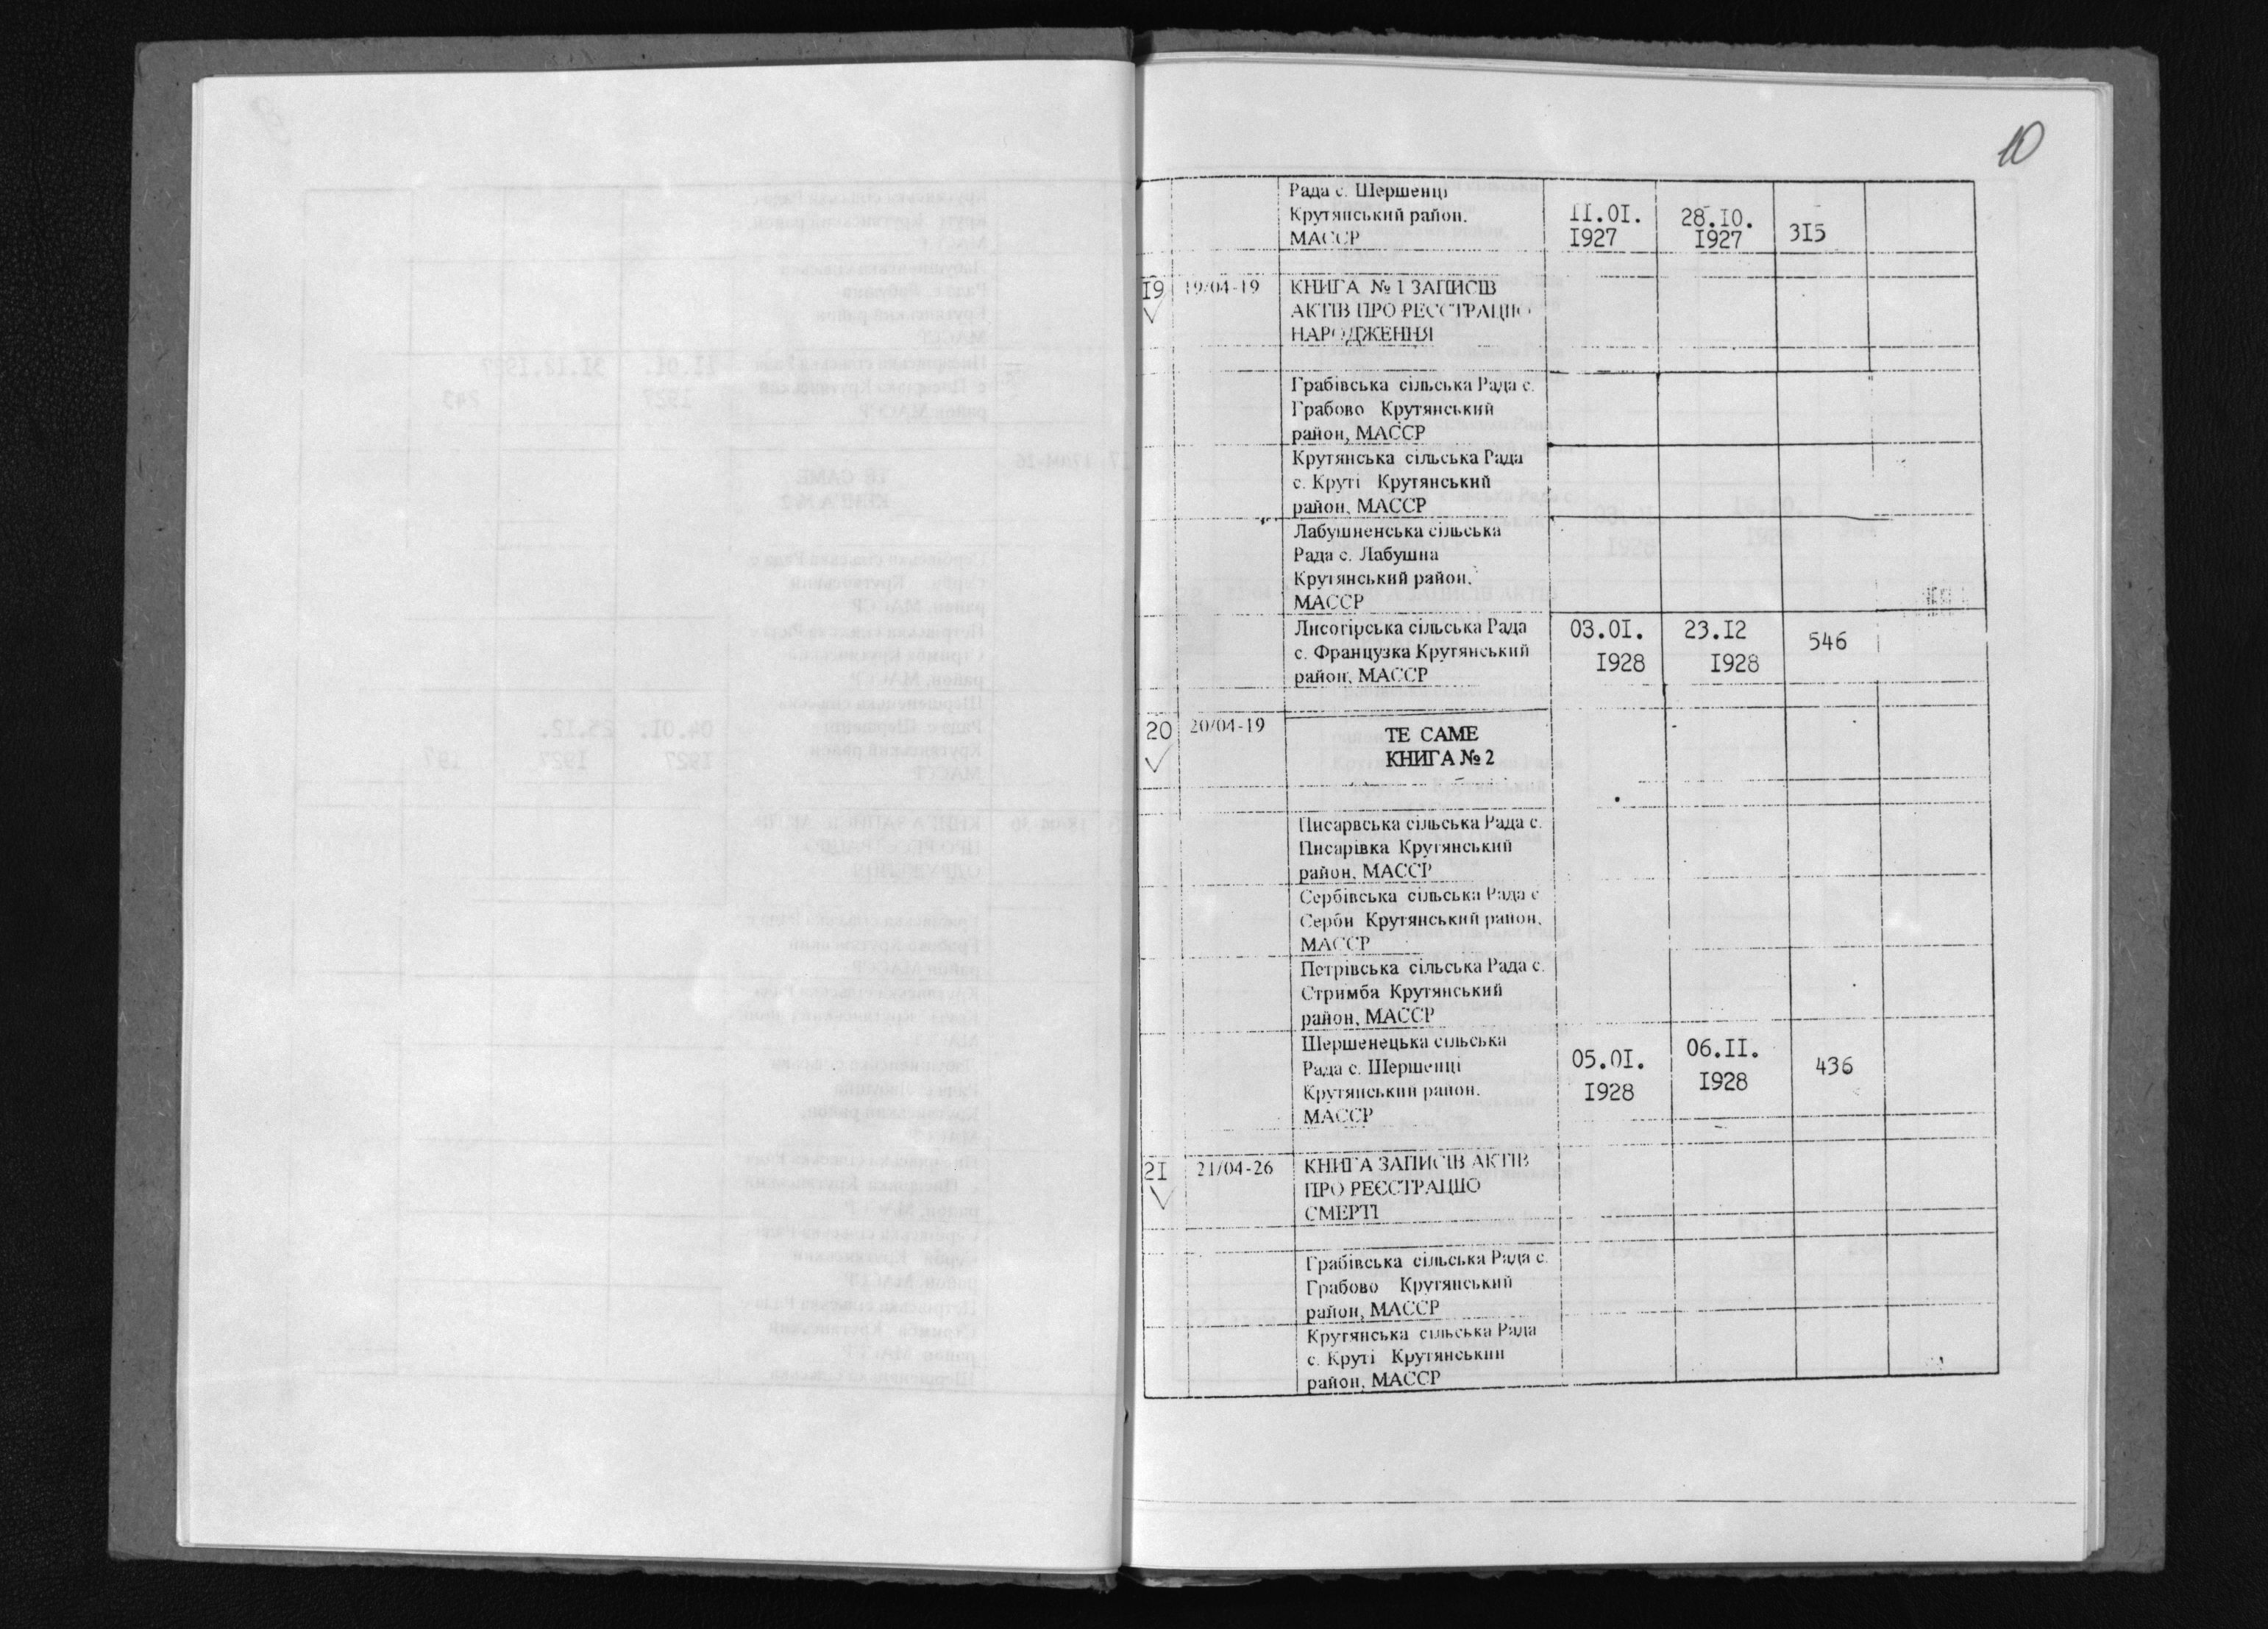 10
Рада с. Шершенці
Крутянський район.
МАССР
11.01.
1927
28.10.
1927
315
19
19/04-19
КНИГА № 1 ЗАПИСІВ
АКТІВ ПРО РЕЄСТРАЦІЮ
НАРОДЖЕННЯ
Грабівська сільська Рада с.
Грабово Крутянський
район, МАССР
Крутянська сільська Рада
с. Круті Крутянський
район, МАССР
Лабушненська сільська
Рада с. Лабушна
Крутянський район,
МАССР
Лисогірська сільська Рада
с. Французка Крутянський
район, МАССР
03.01.
1928
23.12
1928
546
20
20/04-19
ТЕ САМЕ
КНИГА № 2
Писарвська сільська Рада с.
Писарівка Крутянський
район, МАССР
Сербівська сільська Рада с
Серби Крутянський район,
МАССР
Петрівська сільська Рада с.
Стримба Крутянський
район, МАССР
Шершенецька сільська
Рада с. Шершенці
Крутянський район.
МАССР
05.01.
1928
06.11.
1928
436
21
21/04-26
КНИГА ЗАПИСІВ АКТІВ
ПРО РЕЄСТРАЦІЮ
СМЕРТІ
Грабівська сільська Рада с.
Грабово Крутянський
район, МАССР
Крутянська сільська Рада
с. Круті Крутянський
район, МАССР